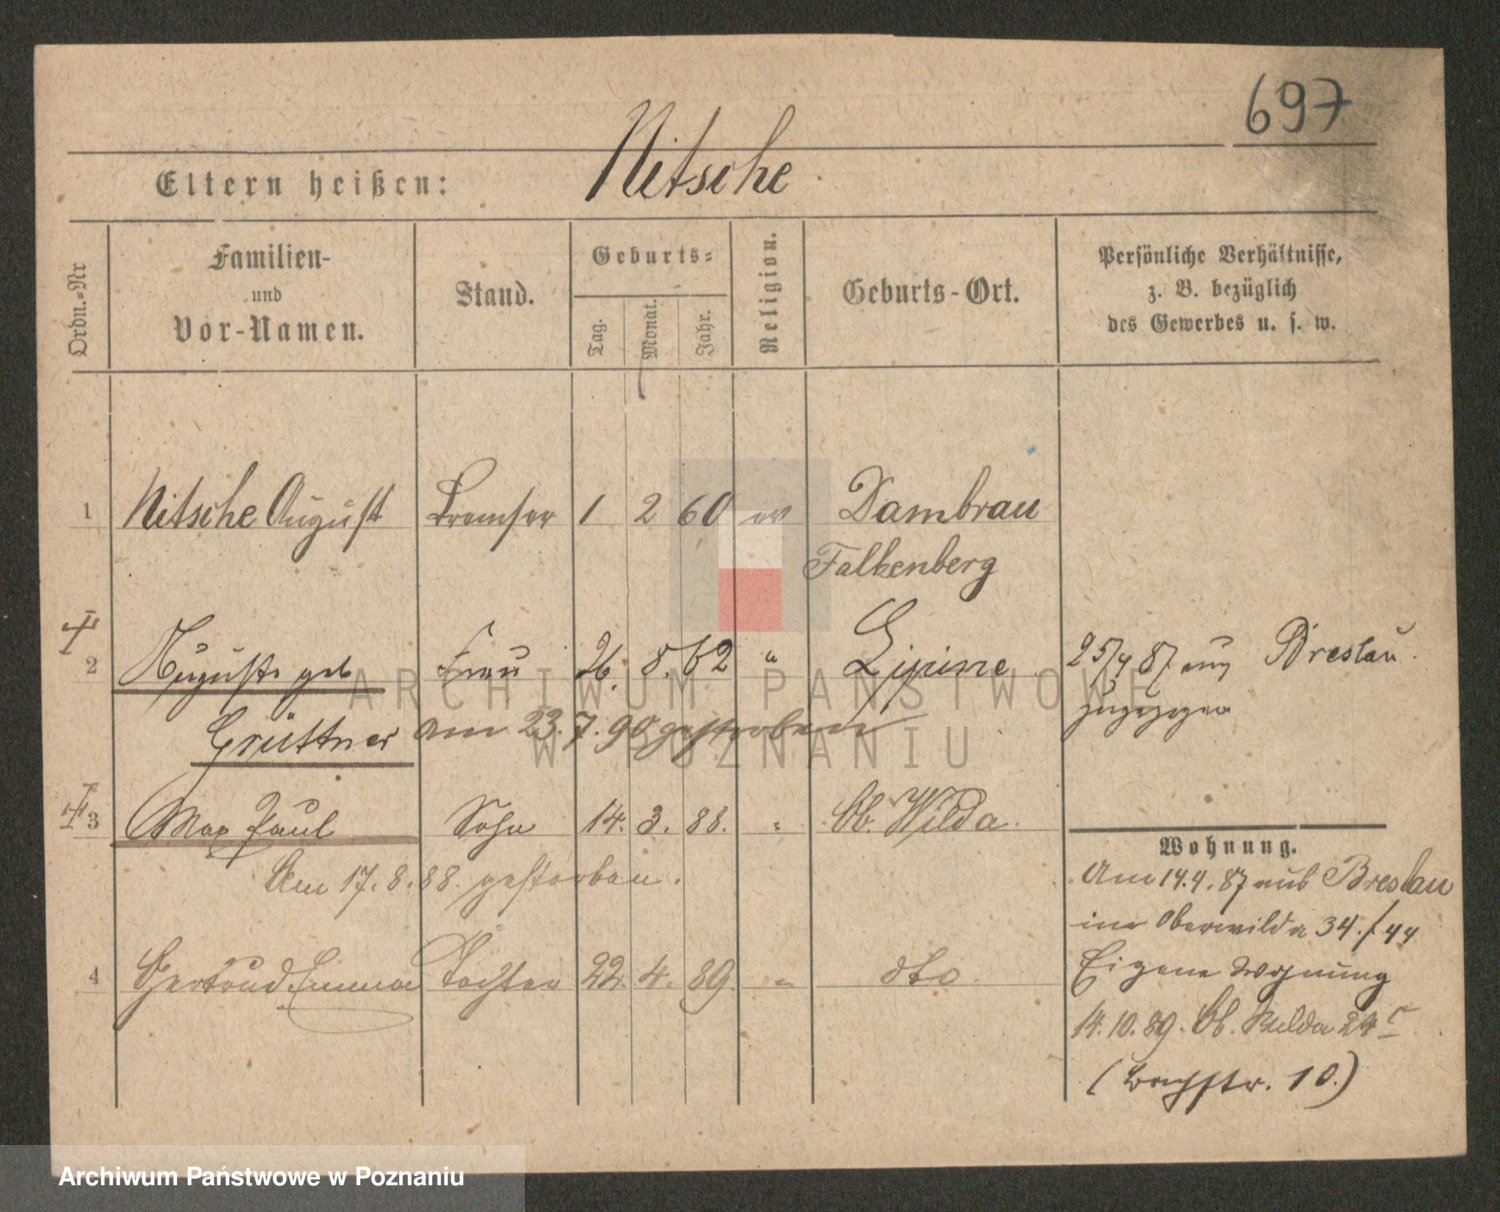 697
Eltern heißen: Nitsche
Ordn.-Nr
Familien-
und
Vor-Namen.
Stand.
Geburts-
Tag.
Monat.
Jahr.
Religion.
Geburts-Ort.
Persönliche Verhältnisse,
z. B. bezüglich
des Gewerbes u. s. w.
1 Nitsche August Bremser 1 2 60 ev Dambrau
Falkenberg
2 Auguste geb Frau 26. 8. 62 " Lipine 25/4 87 aus Breslau.
Grüttner am 23.7.90 gestorben zugezogen
3 Max Paul Sohn 14. 3. 88. " Ob. Wilda.
Am 17.8.88. gestorben.
4 Gertrud Emma Tochter 22. 4. 89 " dto.
Wohnung.
Am 14.4.87 aus Breslau
in Oberwilda 34./44
Eigene Wohnung
14.10.89. Ob. Wilda 24
(Bachstr. 10.)
ARCHIWUM PAŃSTWOWE
W POZNANIU
Archiwum Państwowe w Poznaniu